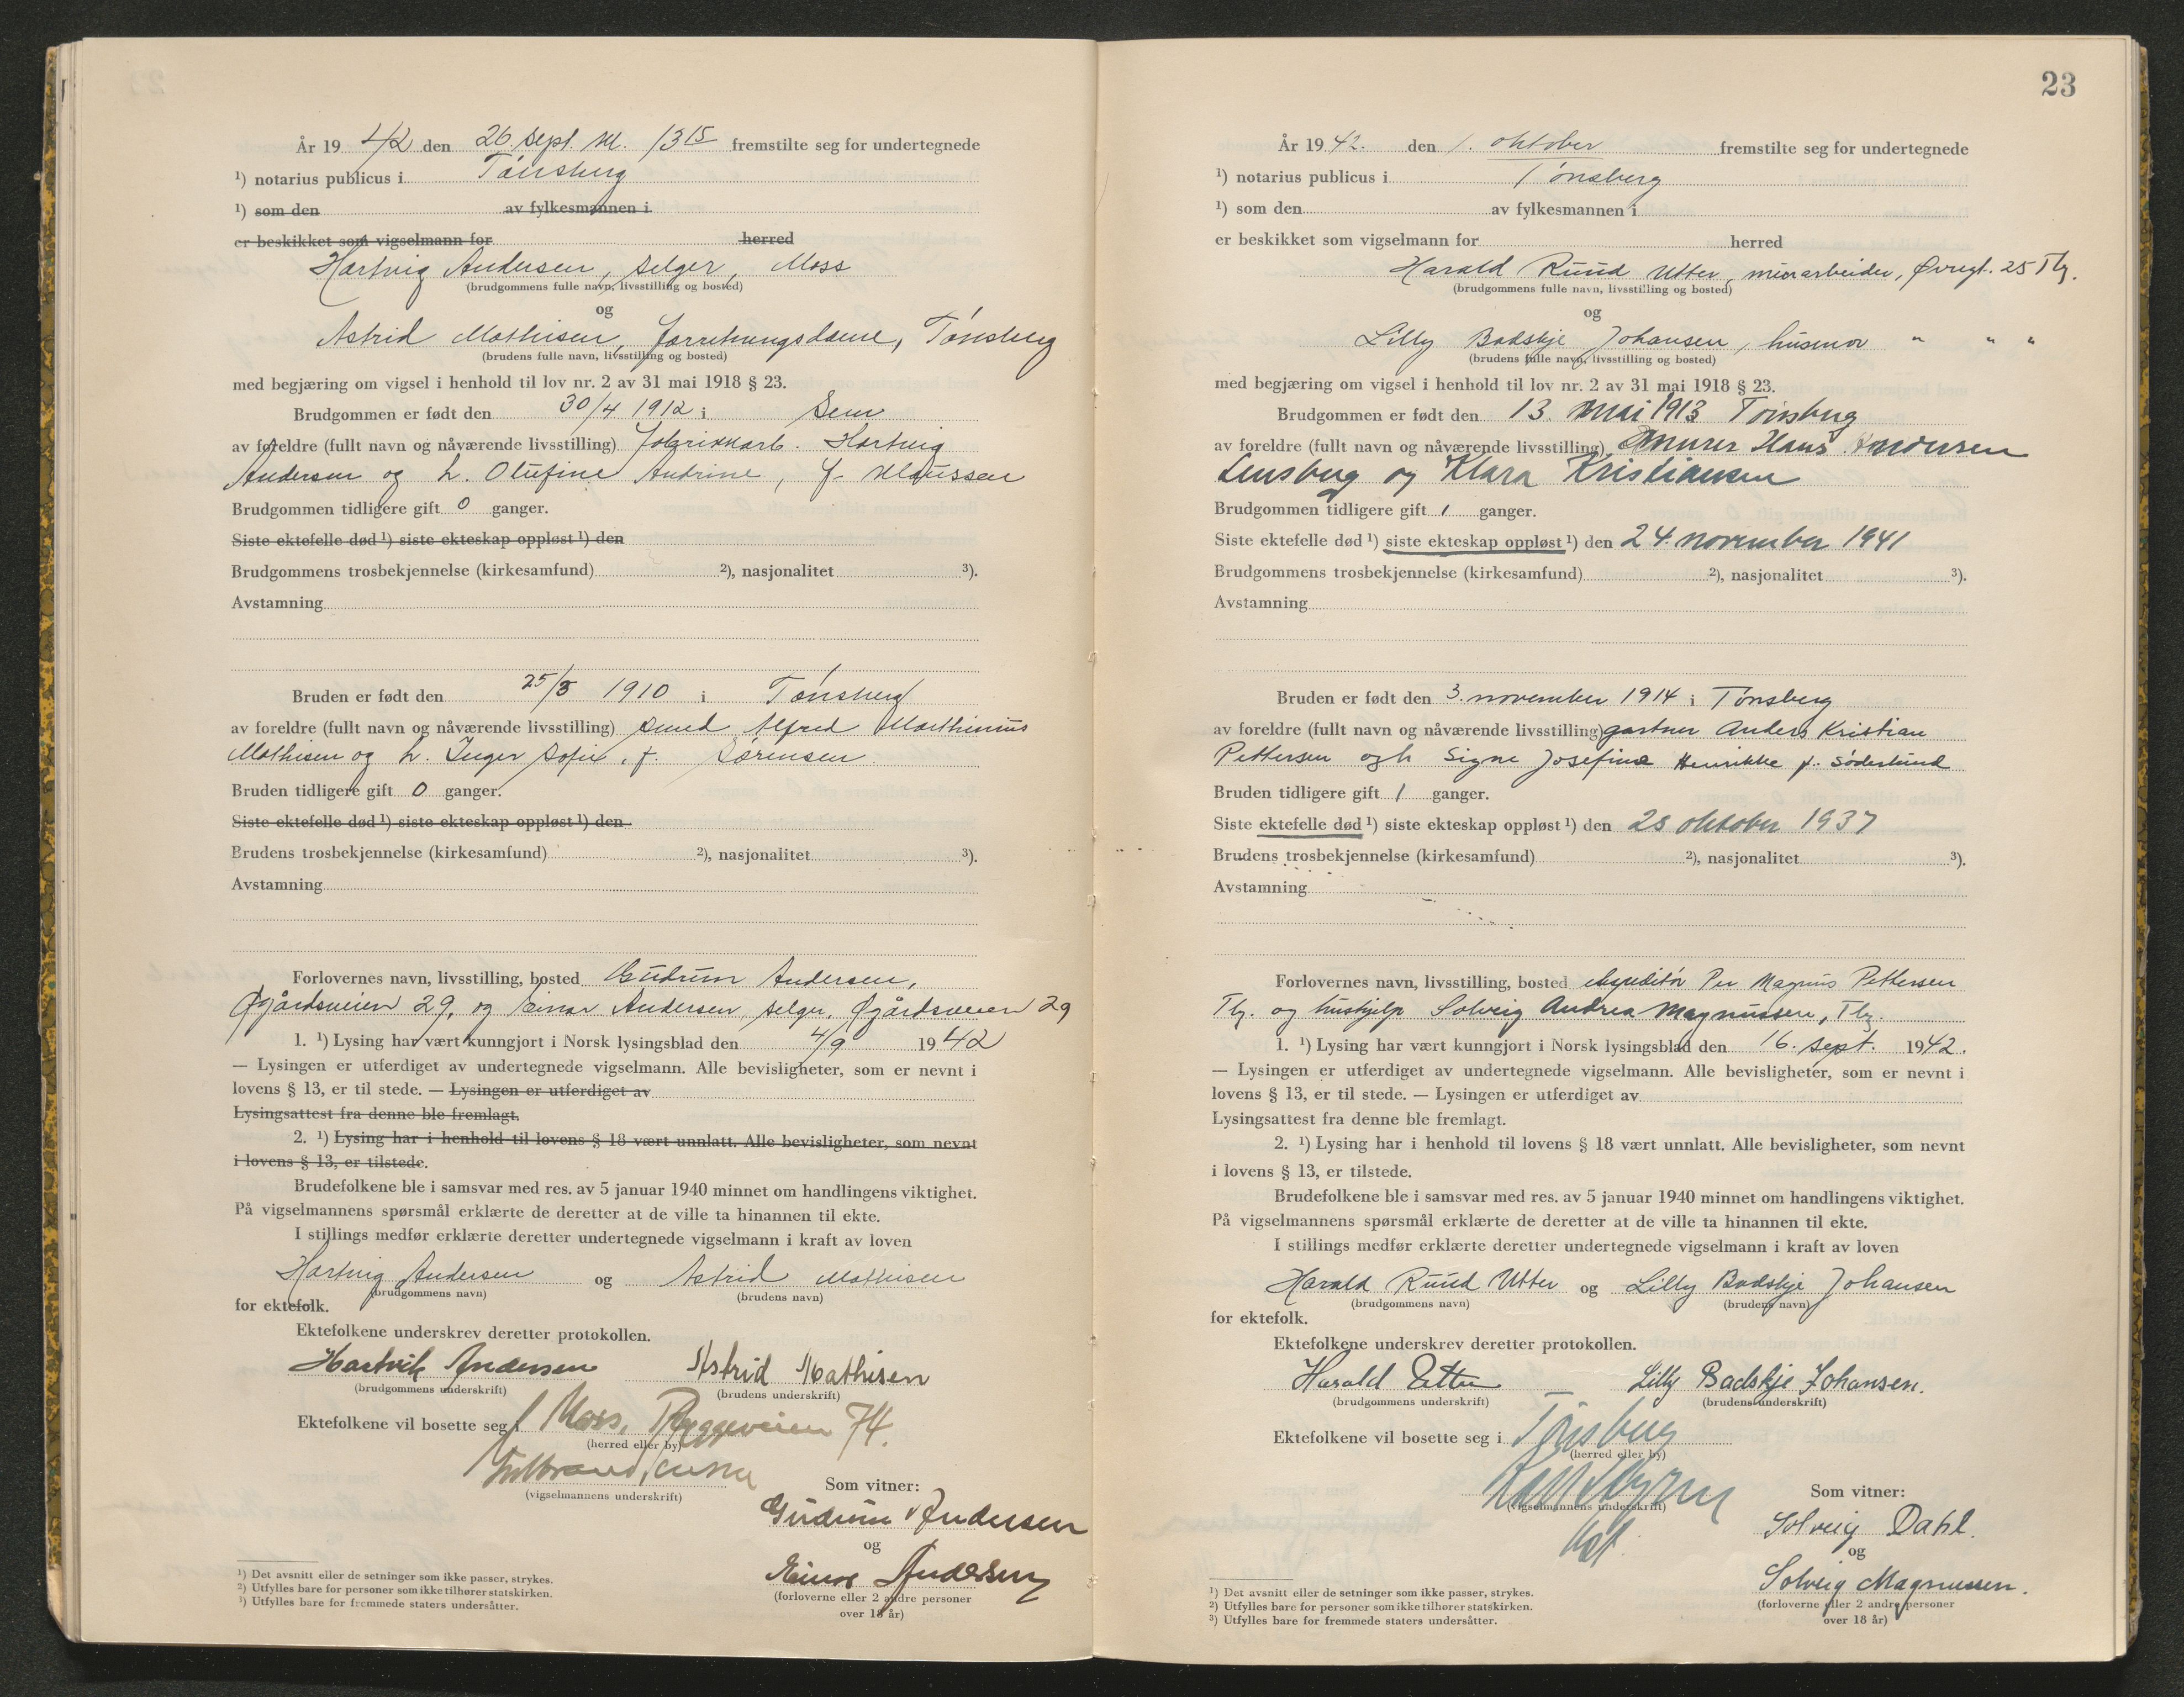 År 19 42 den 26 sept. kl. 13 15 fremstilte seg for undertegnede
1) notarius publicus i Tønsberg
1) som den av fylkesmannen i
er beskikket som vigselmann for herred
Hartvig Andersen, selger, Moss
(brudgommens fulle navn, livsstilling og bosted)
og
Astrid Mathisen, forretningsdame, Tønsberg
(brudens fulle navn, livsstilling og bosted)
med begjæring om vigsel i henhold til lov nr. 2 av 31 mai 1918 § 23.
Brudgommen er født den 30/4 1912 i Sem
av foreldre (fullt navn og nåværende livsstilling) fabrikkarb. Hartvig
Andersen og h. Olufine Andrine, f. Klaussen
Brudgommen tidligere gift 0 ganger.
Siste ektefelle død 1) siste ekteskap oppløst 1) den
Brudgommens trosbekjennelse (kirkesamfund) 2), nasjonalitet 3).
Avstamning
Bruden er født den 25/3 1910 i Tønsberg
av foreldre (fullt navn og nåværende livsstilling) smed Alfred Marthinius
Mathisen og h. Inger Sofie, f. Sørensen
Bruden tidligere gift 0 ganger.
Siste ektefelle død 1) siste ekteskap oppløst 1) den
Brudens trosbekjennelse (kirkesamfund) 2), nasjonalitet 3).
Avstamning
Forlovernes navn, livsstilling, bosted Gudrun Andersen,
Øgårdsveien 29, og Einar Andersen, selger, Øgårdsveien 29
1. 1) Lysing har vært kunngjort i Norsk lysingsblad den 4/9 19 42
— Lysingen er utferdiget av undertegnede vigselmann. Alle bevisligheter, som er nevnt i
lovens § 13, er til stede. — Lysingen er utferdiget av
Lysingsattest fra denne ble fremlagt.
2. 1) Lysing har i henhold til lovens § 18 vært unnlatt. Alle bevisligheter, som nevnt
i lovens § 13, er tilstede.
Brudefolkene ble i samsvar med res. av 5 januar 1940 minnet om handlingens viktighet.
På vigselmannens spørsmål erklærte de deretter at de ville ta hinannen til ekte.
I stillings medfør erklærte deretter undertegnede vigselmann i kraft av loven
Hartvig Andersen og Astrid Mathisen
(brudgommens navn) (brudens navn)
for ektefolk.
Ektefolkene underskrev deretter protokollen.
Hartvik Andersen Astrid Mathisen
(brudgommens underskrift) (brudens underskrift)
Ektefolkene vil bosette seg i Moss, Ryggeveien 74.
(herred eller by)
(vigselmannens underskrift)
Som vitner:
Gudrun Andersen
og
Einar Andersen
(forloverne eller 2 andre personer
over 18 år)
1) Det avsnitt eller de setninger som ikke passer, strykes.
2) Utfylles bare for personer som ikke tilhører statskirken.
3) Utfylles bare for fremmede staters undersåtter.
23
År 19 42. den 1. oktober fremstilte seg for undertegnede
1) notarius publicus i Tønsberg
1) som den av fylkesmannen i
er beskikket som vigselmann for herred
Harald Ruud Utter, murarbeider, Øvregt. 25 Tbg.
(brudgommens fulle navn, livsstilling og bosted)
og
Lilly Badskje Johansen, husmor " " "
(brudens fulle navn, livsstilling og bosted)
med begjæring om vigsel i henhold til lov nr. 2 av 31 mai 1918 § 23.
Brudgommen er født den 13. mai 1913 Tønsberg
av foreldre (fullt navn og nåværende livsstilling) murer Hans Andersen
Lensberg og Klara Kristiansen
Brudgommen tidligere gift 1 ganger.
Siste ektefelle død 1) siste ekteskap oppløst 1) den 24. november 1941
Brudgommens trosbekjennelse (kirkesamfund) 2), nasjonalitet 3).
Avstamning
Bruden er født den 3. november 1914 i Tønsberg
av foreldre (fullt navn og nåværende livsstilling) gartner Anders Kristian
Pettersen og h Signe Josefine Henrikke f. Söderlund
Bruden tidligere gift 1 ganger.
Siste ektefelle død 1) siste ekteskap oppløst 1) den 28 oktober 1937
Brudens trosbekjennelse (kirkesamfund) 2), nasjonalitet 3).
Avstamning
Forlovernes navn, livsstilling, bosted ekspeditør Per Magnus Pettersen
Tbg. og hushjelp Solveig Andrea Magnussen, Tbg.
1. 1) Lysing har vært kunngjort i Norsk lysingsblad den 16. sept. 1942.
— Lysingen er utferdiget av undertegnede vigselmann. Alle bevisligheter, som er nevnt i
lovens § 13, er til stede. — Lysingen er utferdiget av
Lysingsattest fra denne ble fremlagt.
2. 1) Lysing har i henhold til lovens § 18 vært unnlatt. Alle bevisligheter, som nevnt
i lovens § 13, er tilstede.
Brudefolkene ble i samsvar med res. av 5 januar 1940 minnet om handlingens viktighet.
På vigselmannens spørsmål erklærte de deretter at de ville ta hinannen til ekte.
I stillings medfør erklærte deretter undertegnede vigselmann i kraft av loven
Harald Ruud Utter og Lilly Badskje Johansen
(brudgommens navn) (brudens navn)
for ektefolk.
Ektefolkene underskrev deretter protokollen.
Harald Utter Lilly Badskje Johansen.
(brudgommens underskrift) (brudens underskrift)
Ektefolkene vil bosette seg i Tønsberg
(herred eller by)
(vigselmannens underskrift)
Som vitner:
Solveig Dahl.
og
Solveig Magnussen.
(forloverne eller 2 andre personer
over 18 år)
1) Det avsnitt eller de setninger som ikke passer, strykes.
2) Utfylles bare for personer som ikke tilhører statskirken.
3) Utfylles bare for fremmede staters undersåtter.